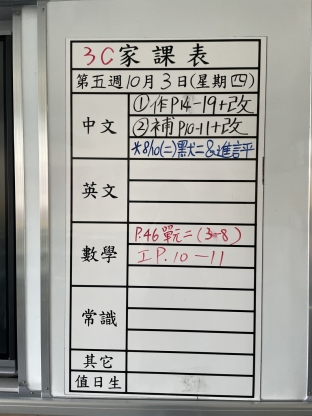 3C家課表
第五週10月3日(星期四)
中文
①作P.14-19+改
②補P10-11+改
*8/10(二)默二&進評
英文
數學
P.46 單二(3-8)
工P.10-11
常識
其它
值日生